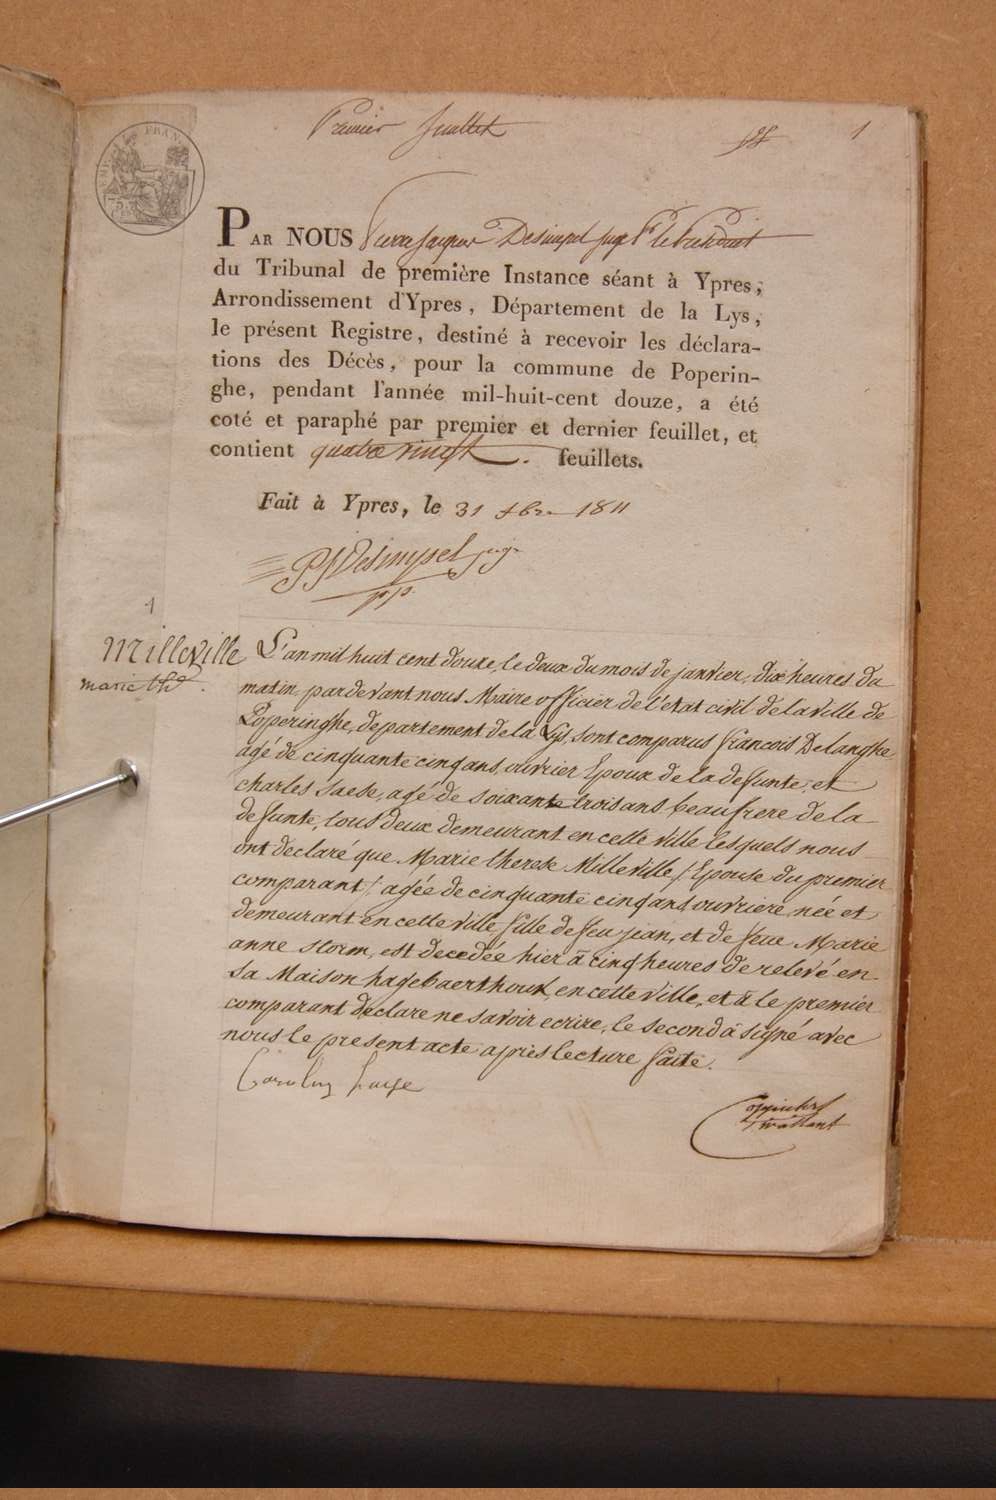 Premier feuillet
1
PAR NOUS Pierre Jacques Desimpel juge Pr le President
du Tribunal de première Instance séant à Ypres,
Arrondissement d'Ypres, Département de la Lys,
le présent Registre, destiné à recevoir les déclara-
tions des Décès, pour la commune de Poperin-
ghe, pendant l'année mil-huit-cent douze, a été
coté et paraphé par premier et dernier feuillet, et
contient quatre vingt. feuillets.
Fait à Ypres, le 31 xbre 1811
PJDesimpel juge
pp
1
Milleville
marie th.
L'an mil huit cent douze, le deux du mois de janvier, dix heures du
matin, par devant nous Maire officier de l'état civil de la ville de
Poperinghe, departement de la Lys, sont comparus francois Delanghe
agé de cinquante cinq ans, ouvrier Epoux de la defunte, et
charles saese, agé de soixante trois ans beaufrere de la
defunte, tous deux demeurant en cette ville lesquels nous
ont declaré que Marie therese Milleville / Epouse du premier
comparant / agée de cinquante cinq ans, ouvriere, née et
demeurant en cette ville, fille de feu jean, et de feue Marie
anne storm, est decedée hier à cinq heures de relevé en
sa Maison hagebaerthouk, en cette ville, et à le premier
comparant declare ne savoir ecrire, le second à signé avec
nous le present acte après lecture faite.